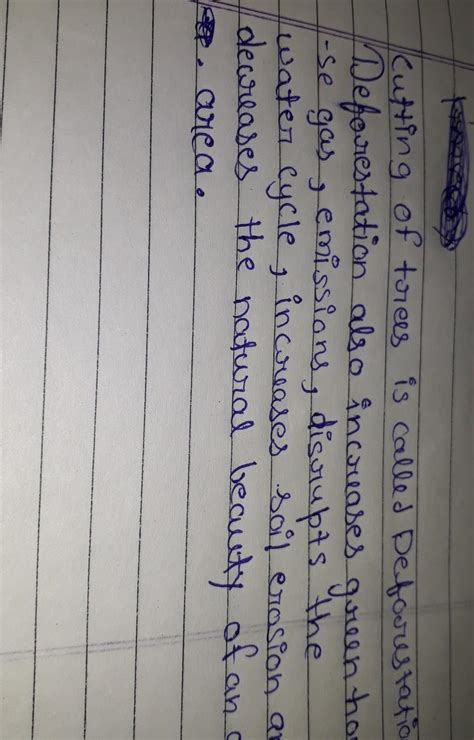 Cutting of trees is called Deforestatio
Deforestation also increases green ho
-se gas, emissions, disrupts the
water cycle, increases soil erosion an
decreases the natural beauty of an
. area.